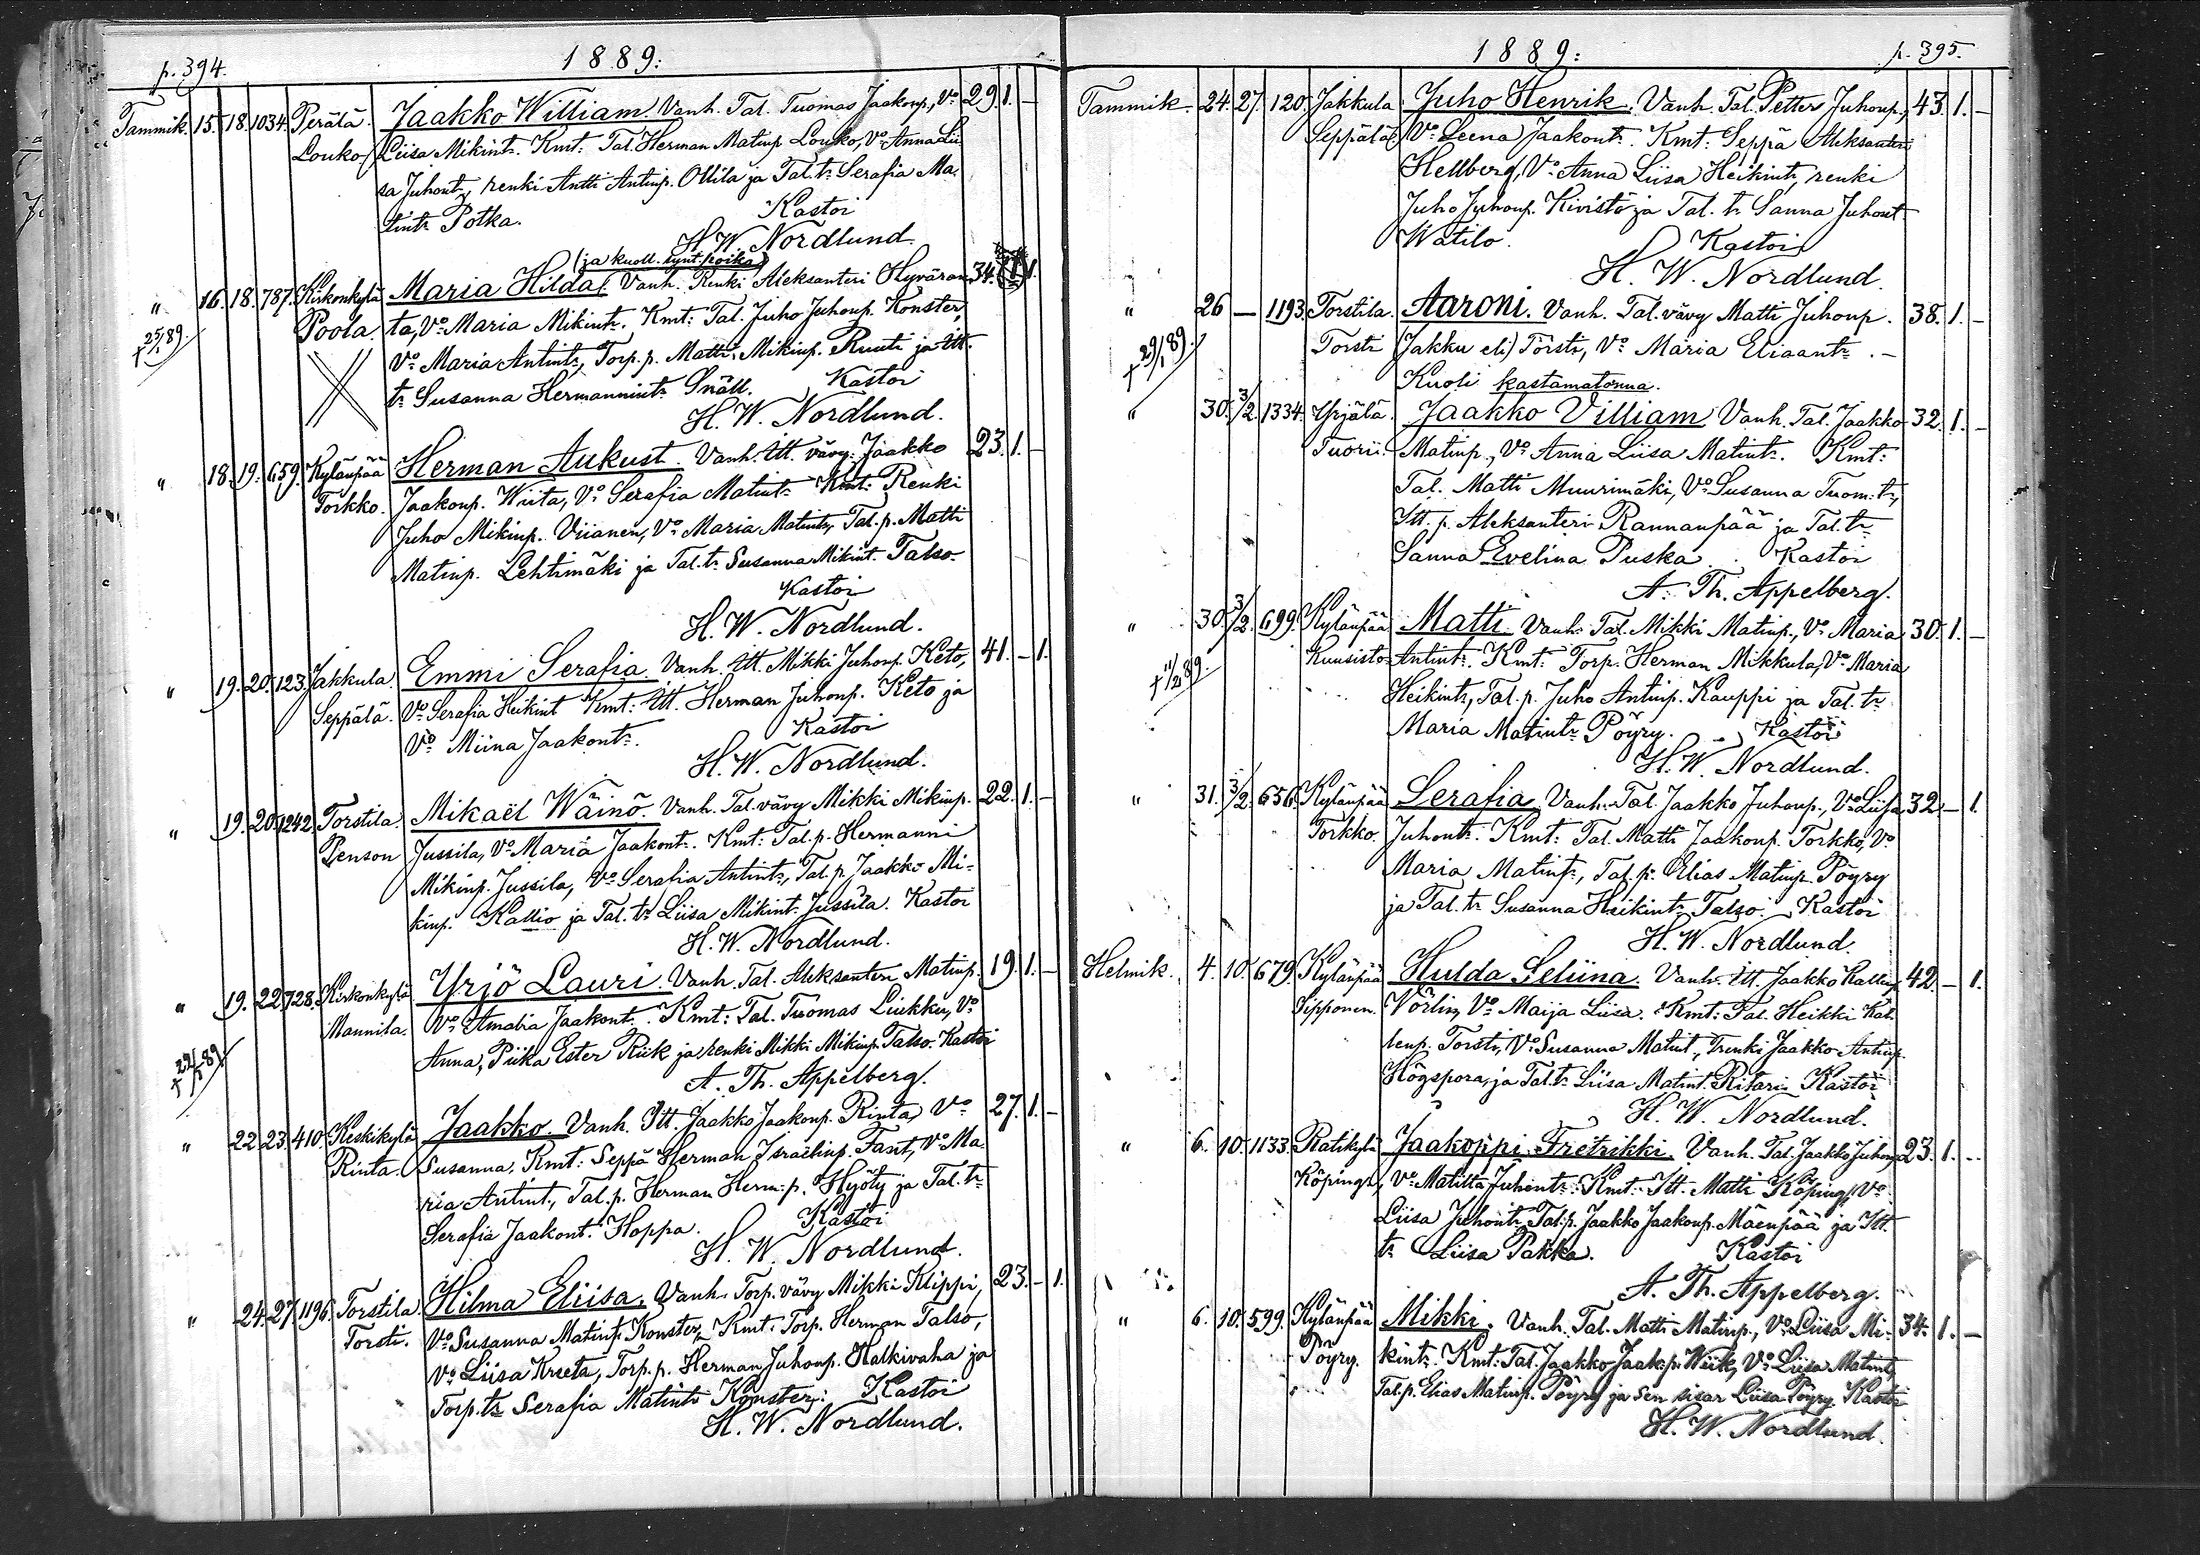 p. 394.
1889:
Tammik. 15. 18. 1034. Perälä. Jaakko William. Vanh. Tal. Tuomas Jaakonp., Vo 29. 1. –
Louko. Liisa Mikint. Kmt: Tal. Herman Matinp. Louko, Vo Anna Lii
sa Juhontr, renki Antti Antinp. Ollila ja Tal. tr Serafia Ma
tintr Potka. Kastoi
H. W. Nordlund.
(ja kuoll. synt. poika)
" 16. 18. 787. Kirkonkylä Maria Hilda. Vanh. Renki Aleksanteri Hyväran 34. 1.
Poola. ta, Vo Maria Mikintr. Kmt: Tal. Juho Juhonp. Konster,
† 25/1 89. Vo Maria Antintr, Torp. p. Matti Mikinp. Ruuti ja Itt.
tr Susanna Hermannintr Snäll. Kastoi
H. W. Nordlund.
" 18. 19. 659. Kylänpää Herman Aukust. Vanh. Itt. vävy Jaakko 23. 1. –
Torkko. Jaakonp. Wiita, Vo Serafia Matintr Kmt: Renki
Juho Mikinp. Viianen, Vo Maria Matintr, Tal. p. Matti
Matinp. Lehtimäki ja Tal. tr Susanna Mikint. Talso.
Kastoi
H. W. Nordlund.
" 19. 20. 123. Jakkula. Emmi Serafia. Vanh. Itt. Mikki Juhonp. Keto, 41. – 1.
Seppälä. Vo Serafia Heikint Kmt: Itt. Herman Juhonp. Keto ja
Vo Miina Jaakontr. Kastoi
H. W. Nordlund.
" 19. 20. 1242. Torstila. Mikaël Wäinö. Vanh. Tal. vävy Mikki Mikinp. 22. 1. –
Penson Jussila, Vo Maria Jaakontr. Kmt: Tal. p. Hermanni
Mikinp. Jussila, Vo Serafia Antintr, Tal. p. Jaakko Mi-
kinp. Kallio ja Tal. tr Liisa Mikint. Jussila. Kastoi
H. W. Nordlund.
" 19. 22. 728. Kirkonkylä Yrjö Lauri. Vanh. Tal. Aleksanteri Matinp. 19. 1. –
Mannila. Vo Amalia Jaakont. Kmt: Tal. Tuomas Liukku, Vo
† 22/1 89. Anna, Piika Ester Riik ja renki Mikki Mikinp. Talso. Kastoi
A. Th. Appelberg.
" 22. 23. 410. Keskikylä Jaakko. Vanh. Itt. Jaakko Jaakonp. Rinta, Vo 27. 1. –
Rinta. Susanna. Kmt: Seppä Herman Israelinp. Fant, Vo Ma-
ria Antint., Tal. p. Herman Herm: p. Hyöty ja Tal. tr
Serafia Jaakont. Hoppa. Kastoi
H. W. Nordlund.
" 24. 27. 1196. Torstila. Hilma Eliisa. Vanh. Torp. vävy Mikki Klippi, 23. – 1.
Torsti. Vo Susanna Matintr Konster. Kmt: Torp. Herman Talso,
Vo Liisa Kreeta, Torp. p. Herman Juhonp. Halkivaha ja
Torp. tr Serafia Matintr Konster. Kastoi
H. W. Nordlund.
1889:
p. 395.
Tammik. 24. 27. 120. Jakkula Juho Henrik. Vanh. Tal. Petter Juhonp., 43. 1. –
Seppälä Vo Leena Jaakontr. Kmt: Seppä Aleksanteri
Hellberg, Vo Anna Liisa Heikintr, renki
Juho Juhonp. Kivistö ja Tal. tr Sanna Juhont
Watilo. Kastoi
H. W. Nordlund.
" 26 – 1193. Torstila. Aaroni. Vanh. Tal. vävy Matti Juhonp. 38. 1. –
† 29/1 89. Torsti (Jakku eli) Torsti, Vo Maria Eliaantr. –
Kuoli kastamatonna.
" 30. 3/2. 1334. Yrjälä. Jaakko Villiam. Vanh. Tal. Jaakko 32. 1. –
Tuorii. Matinp., Vo Anna Liisa Matintr. Kmt:
Tal. Matti Muurimäki, Vo Susanna Tuom. tr,
Itt. p. Aleksanteri Rannanpää ja Tal. tr
Sanna Evelina Puska. Kastoi
A. Th. Appelberg.
" 30. 3/2. 699. Kylänpää Matti. Vanh. Tal. Mikki Matinp., Vo Maria 30. 1. –
† 11/2 89. Kuusisto. Antintr. Kmt: Torp. Herman Mikkula, Vo Maria
Heikintr, Tal. p. Juho Antinp. Kauppi ja Tal. tr
Maria Matintr Pöyry. Kastoi
H. W. Nordlund.
" 31. 3/2. 656. Kylänpää Serafia. Vanh. Tal. Jaakko Juhonp., Vo Liisa 32. – 1.
Torkko. Juhontr. Kmt: Tal. Matti Jaakonp. Torkko, Vo
Maria Matintr, Tal. p. Elias Matinp. Pöyry
ja Tal. tr Susanna Heikintr Talso. Kastoi
H. W. Nordlund.
Helmik. 4. 10. 679. Kylänpää Hulda Seliina. Vanh. Itt. Jaakko Kallenp. 42. – 1.
Sipponen. Vörlin, Vo Maija Liisa. Kmt: Tal. Heikki Kal
lenp. Torsti, Vo Susanna Matint., renki Jaakko Antinp.
Högspora, ja Tal. tr Liisa Matint. Ritari. Kastoi
H. W. Nordlund.
" 6. 10. 1133. Ratikylä Jaakoppi Fretrikki. Vanh. Tal. Jaakko Juhonp. 23. 1. –
Köpingi, Vo Matilta Juhontr. Kmt: Itt. Matti Köpingi, Vo
Liisa Juhontr, Tal. p. Jaakko Jaakonp. Mäenpää ja Itt.
tr Liisa Pakka. Kastoi
A. Th. Appelberg.
" 6. 10. 599. Kylänpää Mikki. Vanh. Tal. Matti Matinp., Vo Liisa Mi- 34. 1. –
Pöyry. kintr. Kmt: Tal. Jaakko Jaak. p. Wiik, Vo Liisa Matintr,
Tal. p. Elias Matinp. Pöyry ja sen sisar Liisa Pöyry. Kastoi
H. W. Nordlund.